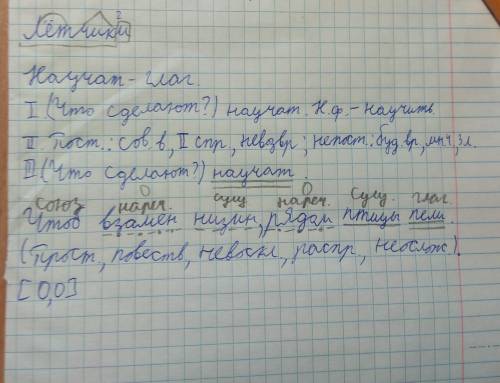 Лётчики²
Научат - глаг.
I (Что сделают?) научат. Н.ф. - научить
II Пост.: сов. в, II спр, невозвр; непост: буд. вр, мн.ч, 3 л.
III (Что сделают?) научат.
союз нареч. сущ нареч. сущ. глаг.
Чтоб взамен низин, рядом птицы пели.
(Прост, повеств, невоскл, распр, неослож).
[О,О]